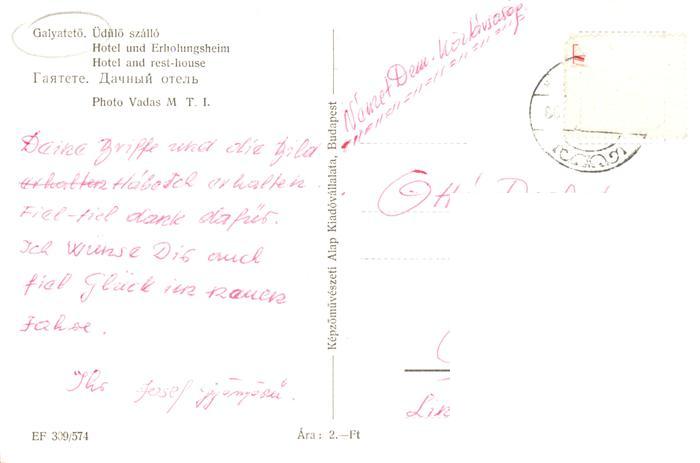 Galyatető. Üdülő szálló
Hotel und Erholungsheim
Hotel and rest-house
Гаятете. Дачный отель
Photo Vadas M T. I.
Német Dem. Köztársaság
Daine briffe und die Bild
erhalten Habe Ich erhalten.
Fiel-fiel dank dafür.
Ich wünse Dir auch
fiel Glück in
Jahre.
Ihr Josef
Képzőművészeti Alap Kiadóvállalata, Budapest
Ottó
Lin
EF 309/574
Ára: 2.—Ft